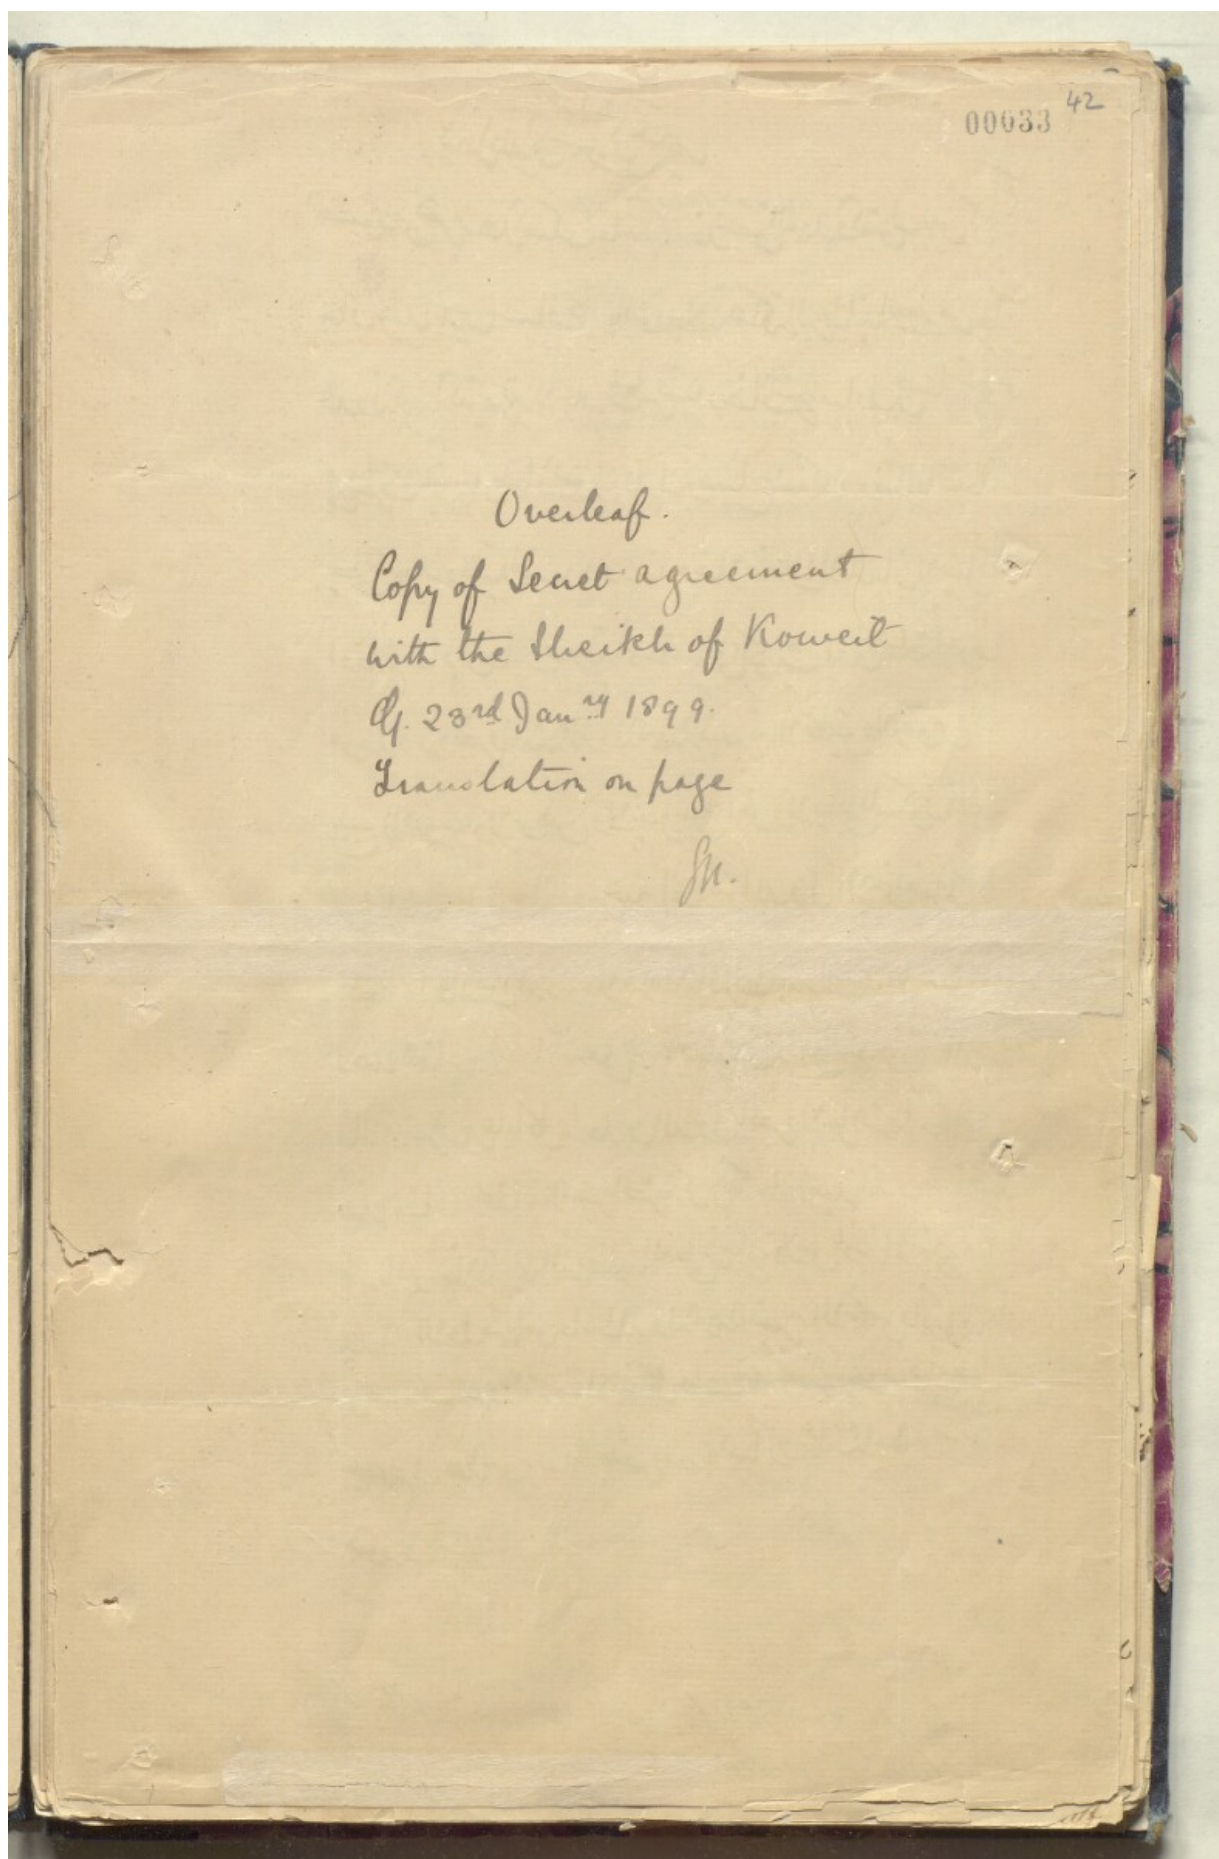 42
00033
Overleaf.
Copy of Secret agreement
with the Sheikh of Koweit
23rd Janry 1899.
Translation on page